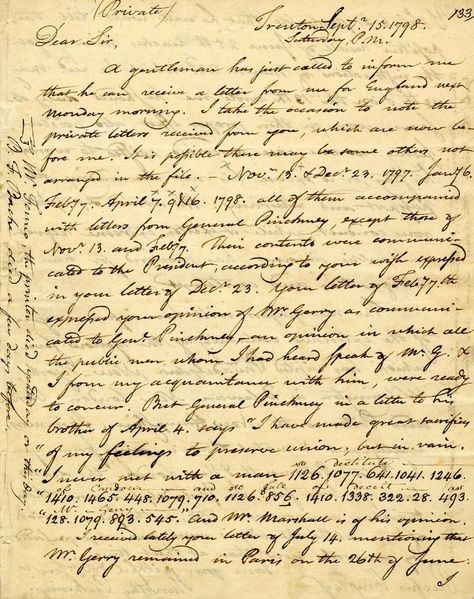 (Private)
133
Trenton Sept. 15. 1798.
Saturday, P.M.
Dear Sir,
A gentleman has just called to inform me
that he can receive a letter from me for England next
monday morning. I take the occasion to note the
private letters received from you, which are now be
fore me. It is possible there may be some others not
arranged in the file. – Nov. 13. & Dec. 23, 1797. Jan. 6.
Feb. 7. April 7. 9 & 16. 1798. all of them accompanied
with letters from General Pinckney, except those of
Nov. 13. and Feb. 7. Their contents were communi-
cated to the President, according to your wish expressed
in your letter of Dec. 23. Your letter of Feb. 7th
expressed your opinion of Mr. Gerry as communi-
cated to Genl. Pinckney – an opinion in which all
the public men whom I had heard speak of Mr. G. &
I from my acquaintance with him, were ready
to concur. But General Pinckney in a letter to his
brother of April 4. says "I have made great sacrifices
"of my feelings to preserve union; but in vain.
so destitute
"I never met with a man 1126. 1077. 641. 1041. 1246.
of candour and so full of deceit as
"1410. 1465. 448. 1079. 710. 1126. 856. 1410. 1338. 322. 28. 493.
Mr. Gerry
"128. 1079. 893. 545." And Mr. Marshall is of his opinion.
I received lately your letter of July 14. mentioning that
Mr. Gerry remained in Paris on the 26th of June:
I
Mr. Fenno the printer died yesterday or the day
B. F. Bache died a few days before